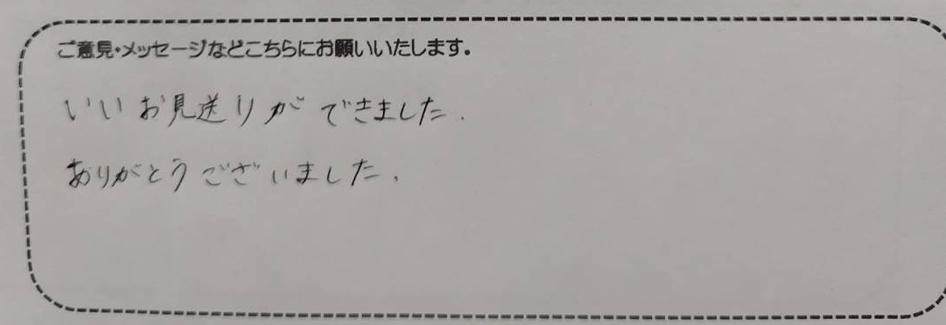 ご意見・メッセージなどこちらにお願いいたします。
いいお見送りができました.
ありがとうございました.